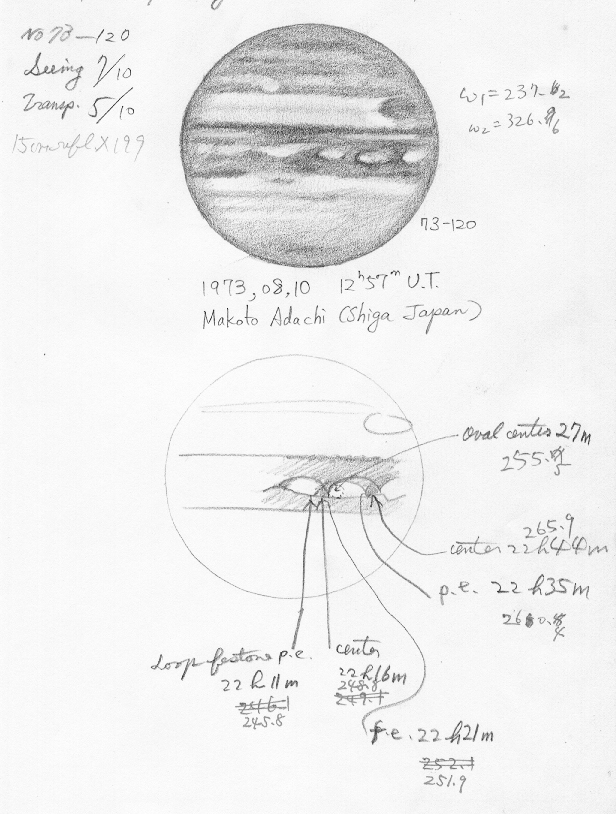 No 73-120
Seeing 7/10
Transp. 5/10
15cm refl X199
ω1=237.
ω2=326.
73-120
1973,08,10 12h57m U.T.
Makoto Adachi (Shiga Japan)
oval center 27m
255.
265.9
center 22h44m
p.e. 22h35m
Loop festone p.e.
22h11m
246.1
245.8
center
22h16m
248.8
249.1
f.e. 22h21m
252.1
251.9